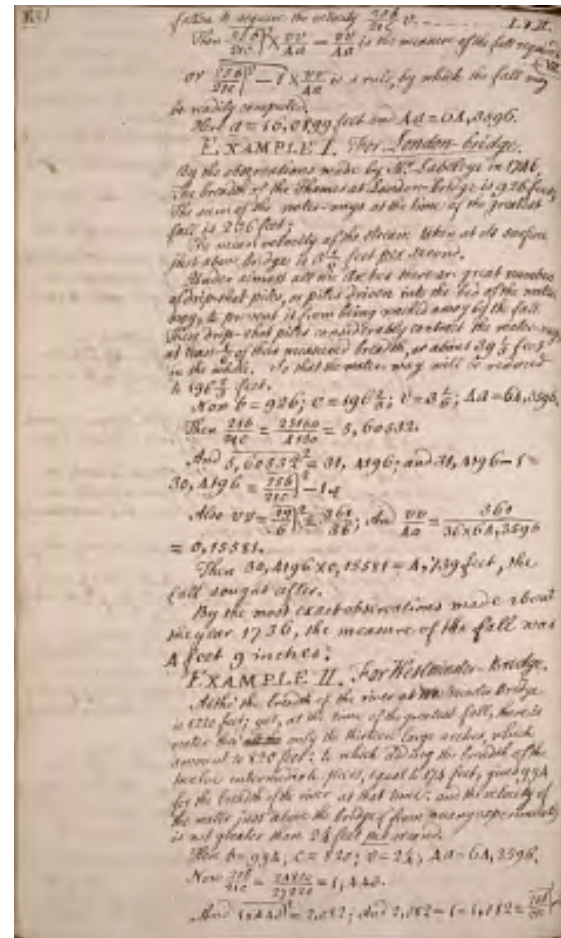 85)
faction to acquire the velocity 25b/21c v. - - - - - - I. & II.
Then 25b/21c|² × vv/4a − vv/4a is the measure of the fall required
or 25b/21c|² − 1 × vv/4a is a rule, by which the fall may
be readily computed.
Here a = 16,0899 feet and 4a = 64,3596.
EXAMPLE I. For London-bridge.
By the observations made by Mr. Labelye in 1746
The breadth of the Thames at London-Bridge is 926 feet;
The sum of the water-ways at the time of the greatest
fall is 236 feet;
The mean velocity of the stream taken at its surface
just above bridge is 3 1/6 feet per second.
Under almost all the arches there are great numbers
of drip-shot piles, or piles driven into the bed of the water
way, to prevent it from being washed away by the fall.
These drip-shot piles considerably contract the water-ways
at least 1/6 of their measured breadth, or about 39 1/3 feet
in the whole. So that the water way will be reduced
to 196 2/3 feet.
Now b = 926; c = 196 2/3; v = 3 1/6; 4a = 64,3596.
Then 25b/21c = 23150/4130 = 5,60532.
And 5,60532² = 31,4196; and 31,4196 − 1 =
30,4196 = 25b/21c|² − 1.
Also vv = 19/6|² = 361/36; And vv/4a = 361/36×64,3596
= 0,15581.
Then 30,4196 × 0,15581 = 4,739 feet, the
fall sought after.
By the most exact observations made about
the year 1736, the measure of the fall was
4 feet 9 inches.
EXAMPLE II. For Westminster-Bridge.
Altho' the breadth of the river at Westminster Bridge
is 1220 feet; yet, at the time of the greatest fall, there is
water thro' only the thirteen large arches, which
amount to 820 feet: to which adding the breadth of the
twelve intermediate piers, equal to 174 feet, gives 994
for the breadth of the river at that time: and the velocity of
the water just above the bridge (from many experiments)
is not greater than 2 1/4 feet per second.
Here b = 994; c = 820; v = 2 1/4; 4a = 64,3596.
Now 25b/21c = 24850/17220 = 1,443.
And 1,443|² = 2,082; And 2,082 − 1 = 1,082 = 25b/21c|² − 1